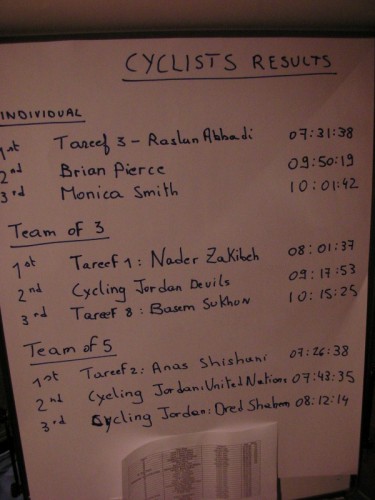 CYCLISTS RESULTS
INDIVIDUAL
1st Tareef 3 - Raslan Abbadi 07:31:38
2nd Brian Pierce 09:50:19
3rd Monica Smith 10:01:42
Team of 3
1st Tareef 1: Nader Zakibeh 08:01:37
2nd Cycling Jordan Devils 09:17:53
3rd Tareef 8: Basem Sukhun 10:15:25
Team of 5
1st Tareef 2: Anas Shishani 07:26:38
2nd Cycling Jordan: United Nations 07:43:35
3rd Cycling Jordan: Dred Shabem 08:12:14